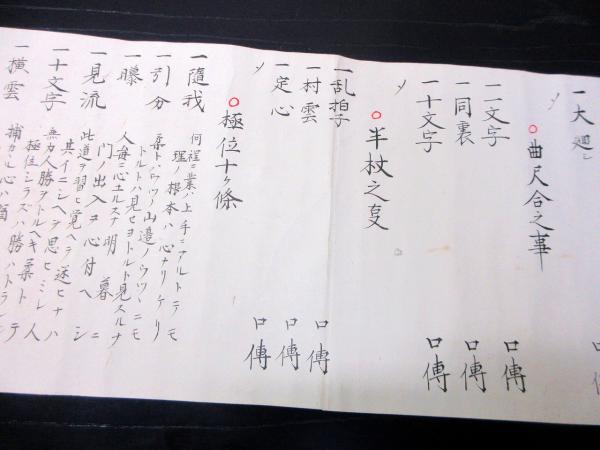 一大廻シ 口
〆
○曲尺合之事
二文字 口傳
一同裏 口傳
一十文字 口傳
〆
○半杖之叓
一乱拍子 口傳
一村雲 口傳
一定心 口傳
〆
○極位十ヶ條
一隨我 何程ニ業ノ上手ニアルトテモ
理ノ根本ハ心ナリケリ
一引分 柔トハウツノ山邉ノウツヽニモ
トルトハ見セヨトルト見スルナ
一曚 人毎ニ心ユルスナ明暮ニ
門出入ヲ心付ヘシ
一見流 此道ヲ習ヒ覚ヘテ遂ヒナハ
其イニシヘヲ思ヒミレ人
一十文字 無力人勝ヲトルヘキ柔トテ
極位シラズハ勝ハトラレシ
一横雲